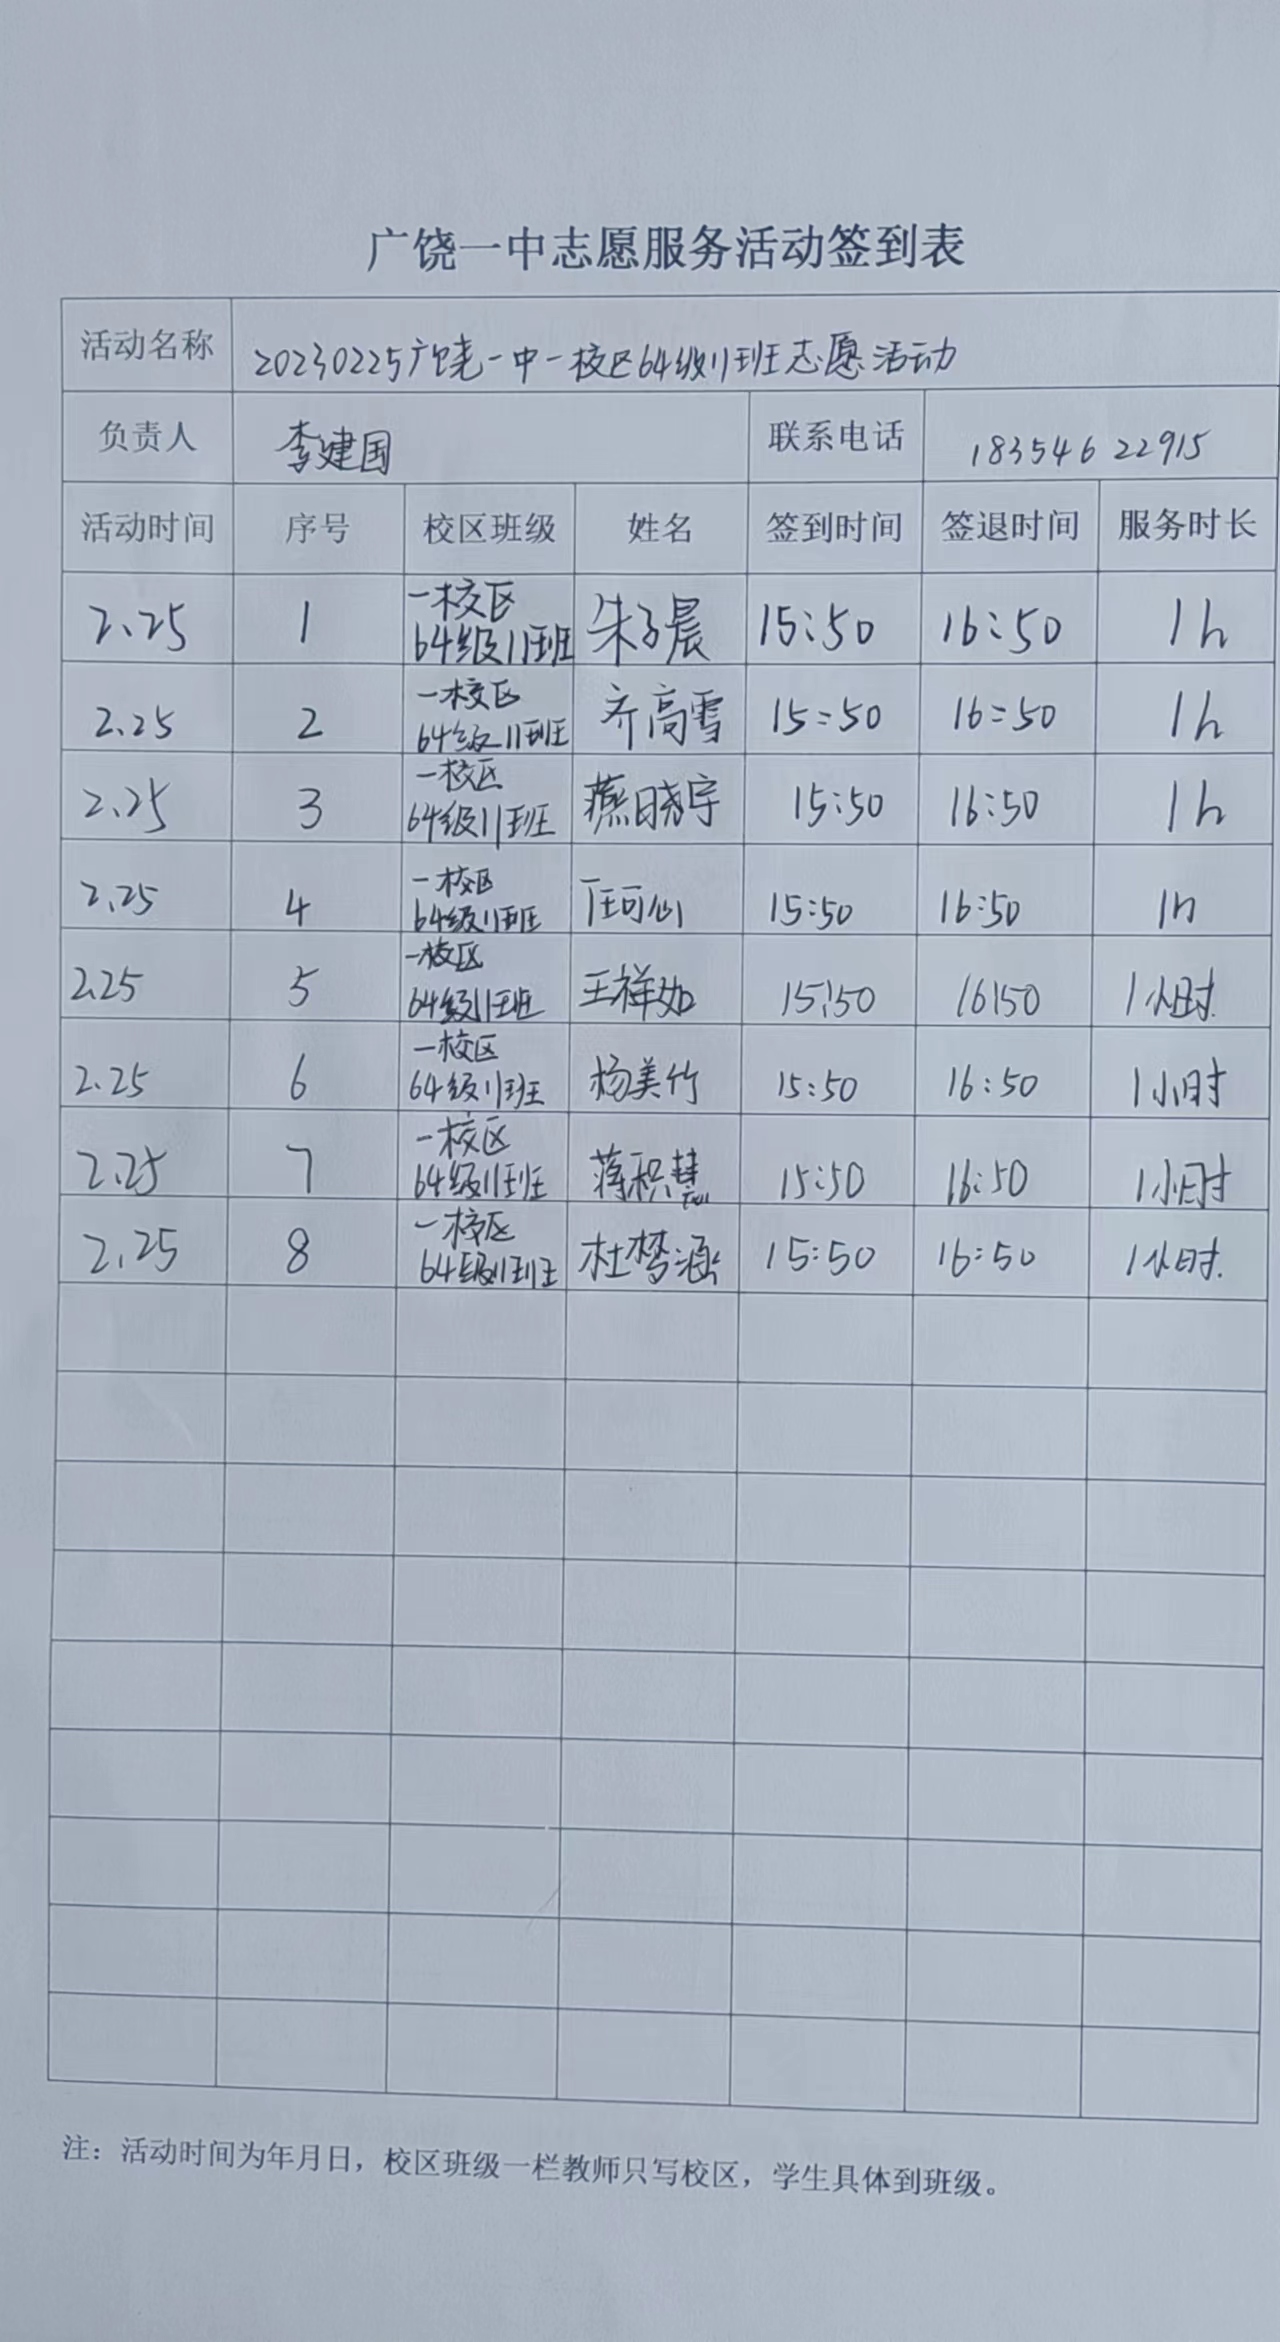 广饶一中志愿服务活动签到表
活动名称 20230225广饶一中一校区64级11班志愿活动
负责人 李建国 联系电话 18354622915
活动时间 序号 校区班级 姓名 签到时间 签退时间 服务时长
2.25 1 一校区 64级11班 朱子晨 15:50 16:50 1h
2.25 2 一校区 64级11班 齐高雪 15:50 16:50 1h
2.25 3 一校区 64级11班 燕晓宇 15:50 16:50 1h
2.25 4 一校区 64级11班 任可心 15:50 16:50 1h
2.25 5 一校区 64级11班 王祥如 15:50 16:50 1小时.
2.25 6 一校区 64级11班 杨美竹 15:50 16:50 1小时
2.25 7 一校区 64级11班 蒋积慧 15:50 16:50 1小时
2.25 8 一校区 64级11班 杜梦涵 15:50 16:50 1小时.
注：活动时间为年月日，校区班级一栏教师只写校区，学生具体到班级。